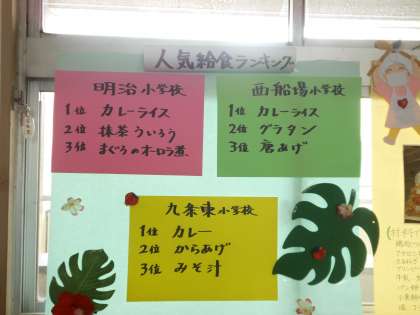 人気給食ランキング
明治小学校
1位 カレーライス
2位 抹茶ういろう
3位 まぐろのオーロラ煮
西船場小学校
1位 カレーライス
2位 グラタン
3位 唐あげ
九条東小学校
1位 カレー
2位 からあげ
3位 みそ汁